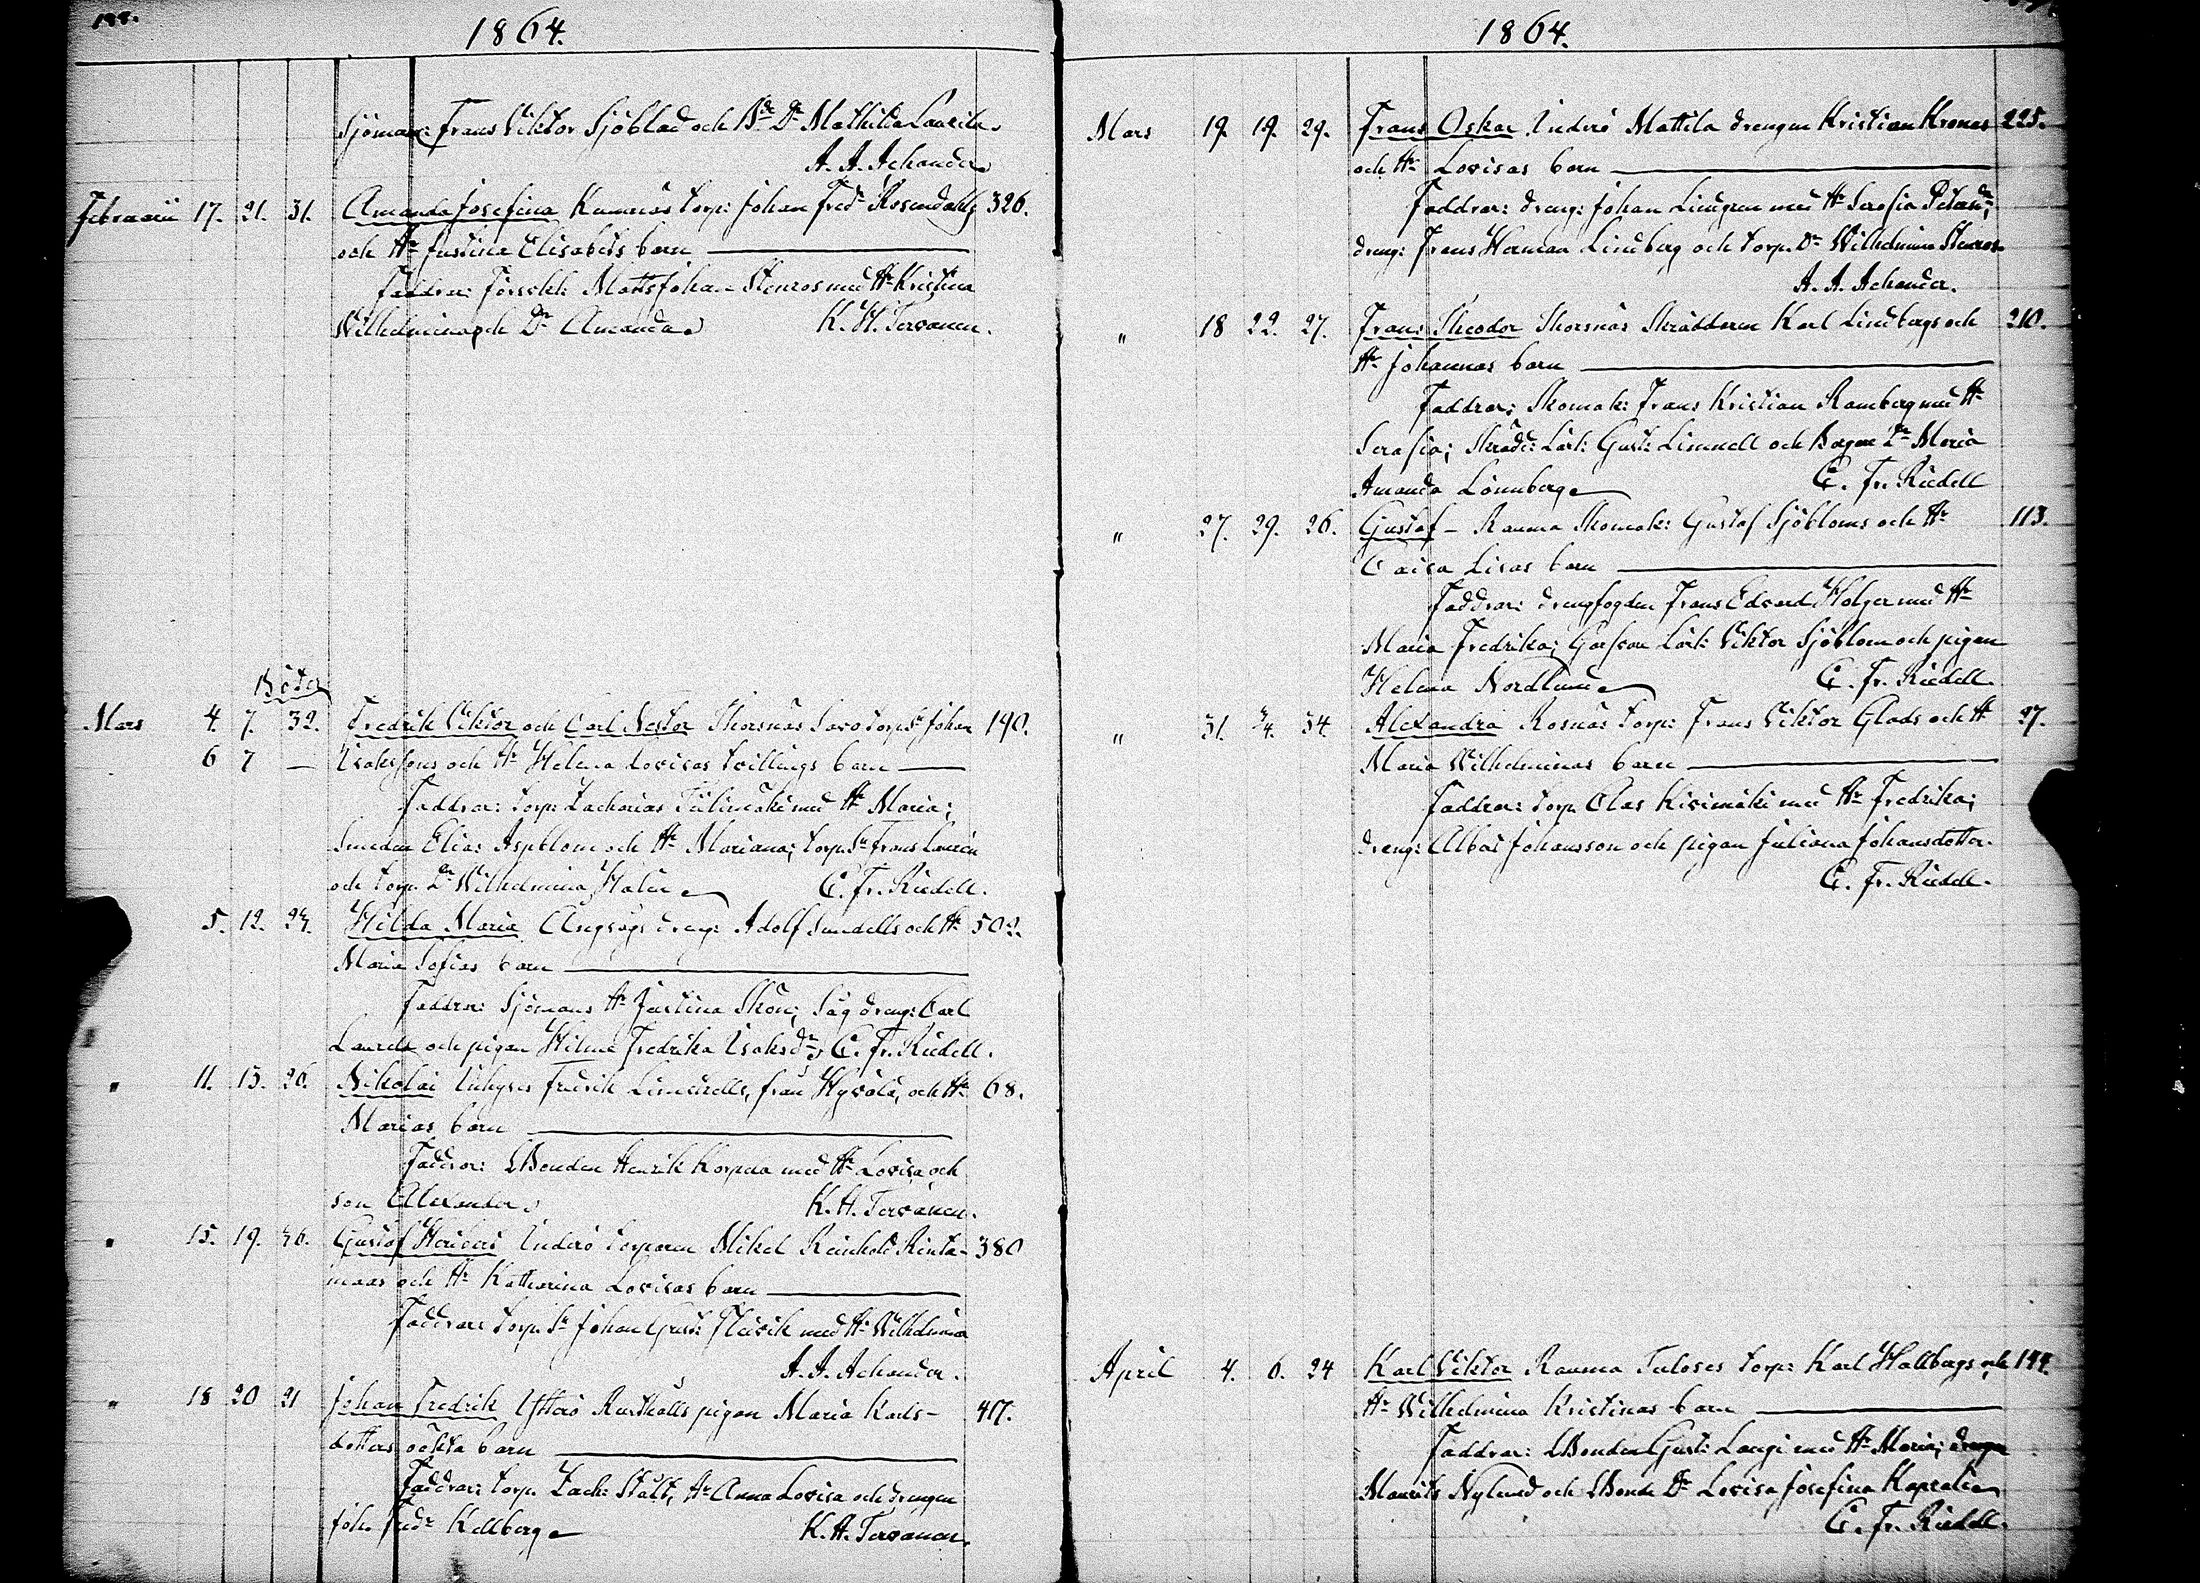 1864.
Sjöman: Frans Viktor Sjöblad och Dr Mathilda Laurila.
A. A. Achander
Februarii 17. 21. 31. Amanda Josefina Kumnäs torp: Johan Fredr Rosendahls 326.
och Hu Justina Elisabets barn
Faddrar: Matts Johan Stenros med Hu Kristina
Wilhelmina och Dr Amanda K. H. Tervonen.
Böter
Mars 4. 7. 32. Fredrik Viktor och Carl Nestor Skorsnäs Savo torp Sn Johan 190.
6 7 — Isakssons och Hu Helena Lovisas tvillings barn
Faddrar: torp: Zacharias Tulimäki med Hu Maria;
Smeden Elias Aspblom och Hu Mariana; torp. Sn Frans Laurén
och torp. Dr Wilhelmina C. Fr. Riedell.
5. 12. 24. Hilda Maria dreng: Adolf Sundells och Hu 502.
Maria Sofias barn
Faddrar: Sjömans Hu Justina Skön; Såg dreng: Carl
Laurell och pigan Helena Fredrika Isaksdr; C. Fr. Riedell.
" 11. 13. 26. Nikolai Inhyses Fredrik Lindells, från Hyvölä, och Hu 68.
Marias barn
Faddrar: Bonden Henrik Korpela med Hu Lovisa och
son Alexander K. H. Tervonen.
" 15. 19. 36. Gustaf Heribert Inderö torparen Mikel Reinhold Rinta- 380
maas och Hu Katharina Lovisas barn
Faddrar: torp. Sn Johan Gust: Flävik med Hu Wilhelmina
A. A. Achander.
" 18 20 21 Johan Fredrik Ytterö Rusthålls pigan Maria Karls- 417.
dotters oäkta barn
Faddrar: torp. Zach: Stålt, Hu Anna Lovisa och drengen
Joh. Fredr Kellberg K. H. Tervonen.
1864.
Mars 19. 19. 29. Frans Oskar Inderö Mattila drengen Kristian Kronas 225.
och Hu Lovisas barn
Faddrar: dreng: Johan Lindgren med Hu Serafia
dreng: Frans Herman Lindberg och torp. Dr Wilhelmina Stenros
A. A. Achander.
" 18 22. 27. Frans Theodor Skorsnäs Skräddaren Karl Lindbergs och 210.
Hu Johannas barn
Faddrar; Skomak: Frans Kristian Ramberg med Hu
Serafia; Skrädd: Lärl: Gust: Linnell och Dr Maria
Amanda Lönnberg C. Fr. Riedell
" 27. 29. 26. Gustaf – Rauma Skomak: Gustaf Sjöbloms och Hu 113.
Caisa Lisas barn
Faddrar: drengfogden Frans Edvard Holger med Hu
Maria Fredrika; Garfvare Lärl: Viktor Sjöblom och pigan
Helena Nordlund C. Fr. Riedell.
" 31. 3/4. 34. Alexandra Rosnäs torp: Frans Viktor Glads och Hu 27.
Maria Wilhelminas barn
Faddrar: torp. Clas Kivimäki med Hu Fredrika;
dreng: Albei Johansson och pigan Juliana Johansdotter.
C. Fr. Riedell.
April 4. 6. 24 Karl Viktor Rauma Tuloses torp: Karl Hallbergs och 144.
Hu Wilhelmina Kristinas barn
Faddrar: Bonden Gust: Laugi med Hu Maria; drengen
Maurits Nylund och Bonde Dr Lovisa Josefina
C. Fr. Riedell.